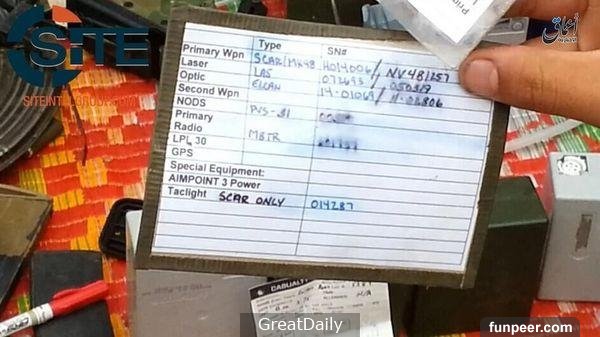 SITE
SITEINTELGROUP.COM
أعماق
Type SN#
Primary Wpn SCAR/MK48 H014006/NV481257
Laser LA5 072693 050319
Optic ELCAN 14-01069/11-06806
Second Wpn
NODS PVS-31
Primary
Radio MBTR
LPL 30
GPS
Special Equipment:
AIMPOINT 3 Power
Taclight SCAR ONLY 014287
CASUALTY
N/A
GreatDaily
funpeer.com